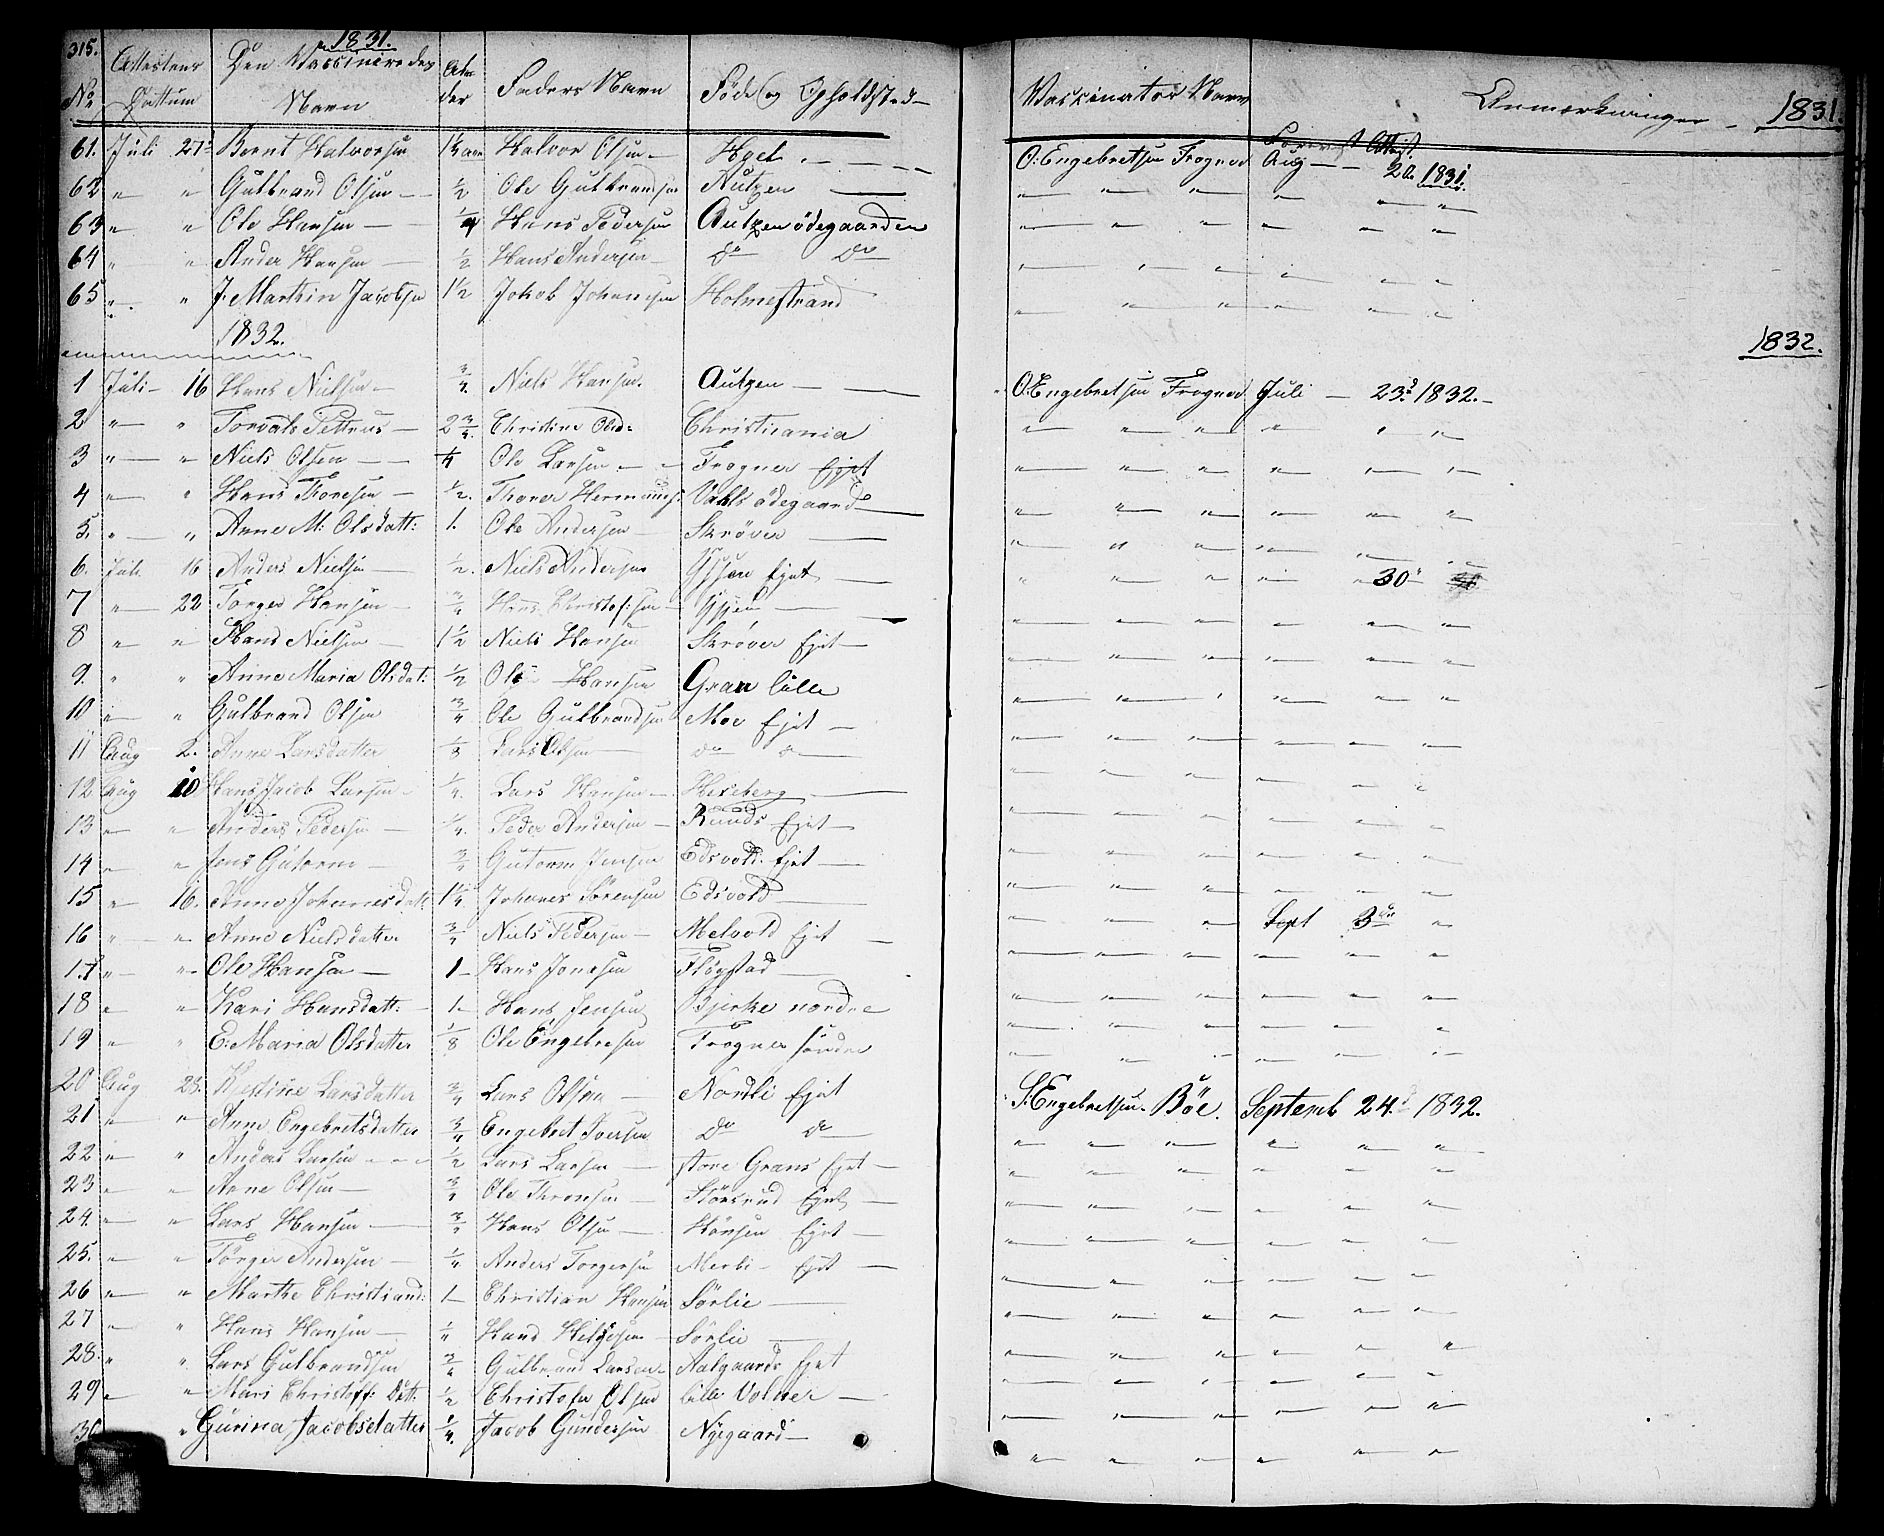 315. 1831.
No Attestens Dattum Den Vaccineredes Navn Alder Faders Navn Føde og Opholdsted Vaccinator Navn Anmærkninger 1831.
Forevist Attest.
61. Juli 27d Bernt Halvorsen 1¼ aar Halvor Olsen O: Engebretsen Frogner Aug 20 1831.
62 " " Gulbrand Olsen ½ Ole Gulbrandsen Autzen " " " " " "
63 " " Ole Hansen ¼ Hans Pedersen Autzenødegaarden " " " " " "
64 " " Ander Hansen ½ Hans Andersen Do Do " " " " " "
65 " " J. Marthin Jacobsen 1½ Jokob Johannsen Holmestrand " " " " "
1832. 1832.
1 Juli 16 Hans Nielsen ¾ Niels Hansen Autzen O: Engebretsen Frogner Juli 23d 1832.
2 " " Torvals Pettrus 2¾ Christine Olsd: Christiania " " " " " "
3 " " Niels Olsen ¼ Ole Larsen Frogner Ejet " " " " " "
4 " " Hans Thoresen ½ Thorer Hermans: Vahlsødegaard " " " " " "
5. " " Anne M: Olsdatt: 1 Ole Andersen Skrøver " " " " " "
6. Juli 16 Anders Nielsen ½ Niels Andersen Ejet " " " " 30
7 " 22 Torger Hansen ¾ Hans Christof:sen " " " " " "
8 " " Hans Nielsen 1½ Niels Hansen Skrøver Ejet " " " " " "
9. " " Anne Maria Olsdat: ½ Ole Hansen Gran lille " " " " " "
10 " " Gulbrand Olsen ¾ Ole Gulbrandsen Moe Ejet " " " " " "
11 Aug 2. Anne Larsdatter ⅛ Lars Olsen Do Do " " " " " "
12 Aug 10 Hans Jacob Larsen ¼ Lars Hansen Hexeberg " " " " " "
13 " " Anders Pedersen ¼ Peder Andersen Ruuds Ejet " " " " " "
14 " " Jens Gutorm ¾ Gutorm Jensen Edsvold Ejet " " " " " "
15 " 16. Anne Johannesdatt 1¼ Johanes Sørensen Edsvold " " " Sept 3die "
16 " " Anne Nielsdatter ¾ Niels Pedersen Melvold Ejet " " " " " "
17 " " Ole Hansen 1 Hans Jonesen Fløgstad " " " " " "
18 " " Kari Hansdatt: 1 Hans Jensen Bjerke nordre " " " " " "
19 " " E: Maria Olsdatter ⅛ Ole Engebresen Frogner søndre " " " " " "
20 Aug 23. Kestine Larsdatter ¾ Lars Olsen Nordli Ejet S: Engebretsen Bøe. Septemb 24d 1832.
21 " " Anne Engebretsdatter ¾ Engebret Iversen Do Do " " " " " "
22 " " Anders Larsen ½ Lars Larsen store Grans Ejet " " " " " "
23 " " Arne Olsen ¾ Ole Thronsen Størsrud Ejet " " " " " "
24. " " Lars Hansen ¾ Hans Olsen Ejet " " " " " "
25. " " Törger Andersen ¼ Anders Torgersen Merli Ejet " " " " " "
26 " " Marthe Christiansd: 1 Christian Hansen Sørlie " " " " " "
27 " " Hans Hansen ¼ Hans Helgesen Sørlie " " " " " "
28. " " Lars Gulbrandsen ¾ Gulbrand Larsen Aalgaards Ejet " " " " " "
29 " " Mari Christoff: Datt: ½ Christofer Olsen lille Volner " " " " " "
30 " Gurina Jacobsdatter ¼ Jacob Gundersen Nyegaard " " " " " "